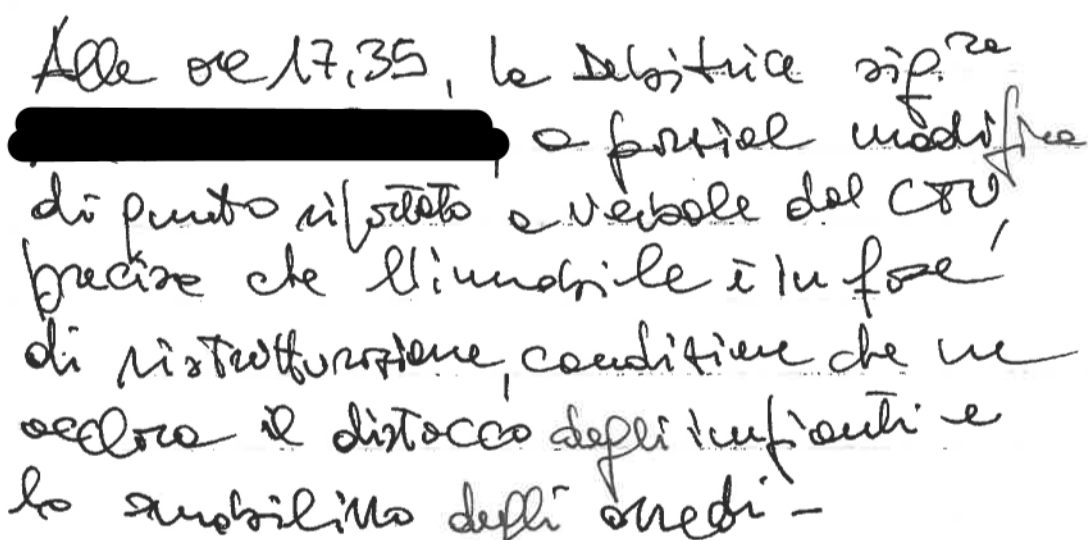 Alle ore 17,35, la Debitrice sig.ra
a parziale modifica
di punto riportato a verbale dal CTU,
precisa che l'immobile è in fase
di ristrutturazione, condizione che ne
il distacco degli impianti e
lo smobilizzo degli arredi -